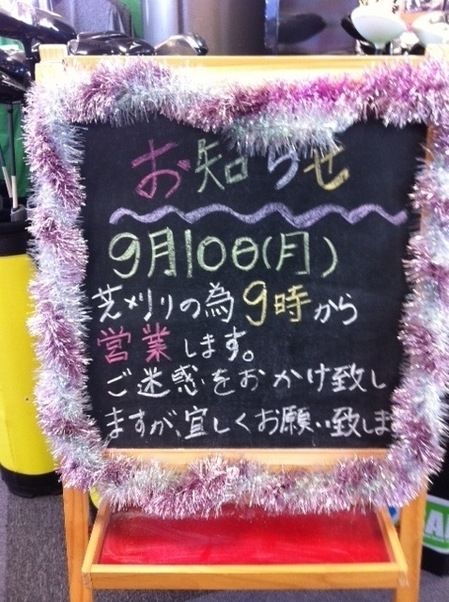 お知らせ
9月10日(月)
芝刈りの為9時から
営業します。
ご迷惑をおかけ致し
ますが、宜しくお願い致しま